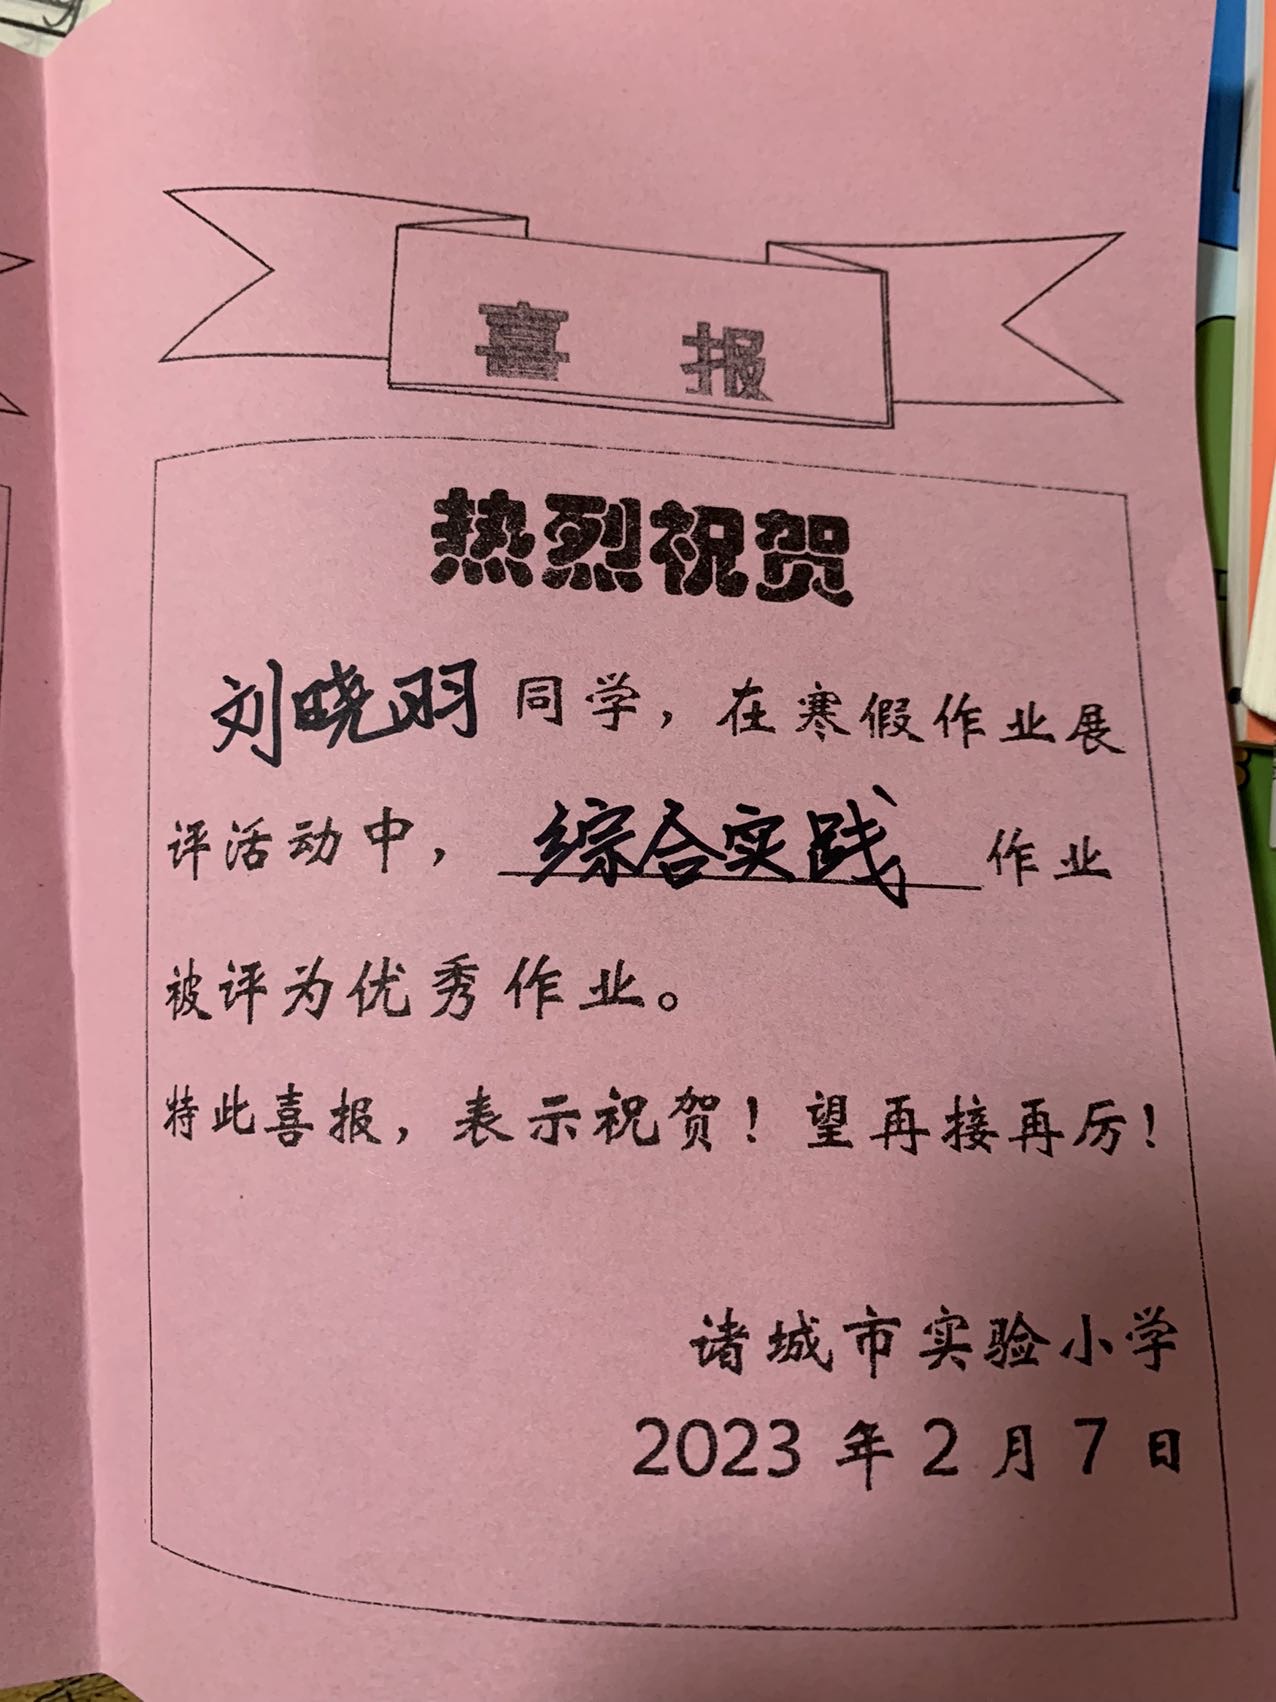 喜 报
热烈祝贺
刘晓羽同学，在寒假作业展
评活动中，综合实践作业
被评为优秀作业。
特此喜报，表示祝贺！望再接再厉！
诸城市实验小学
2023 年 2 月 7 日